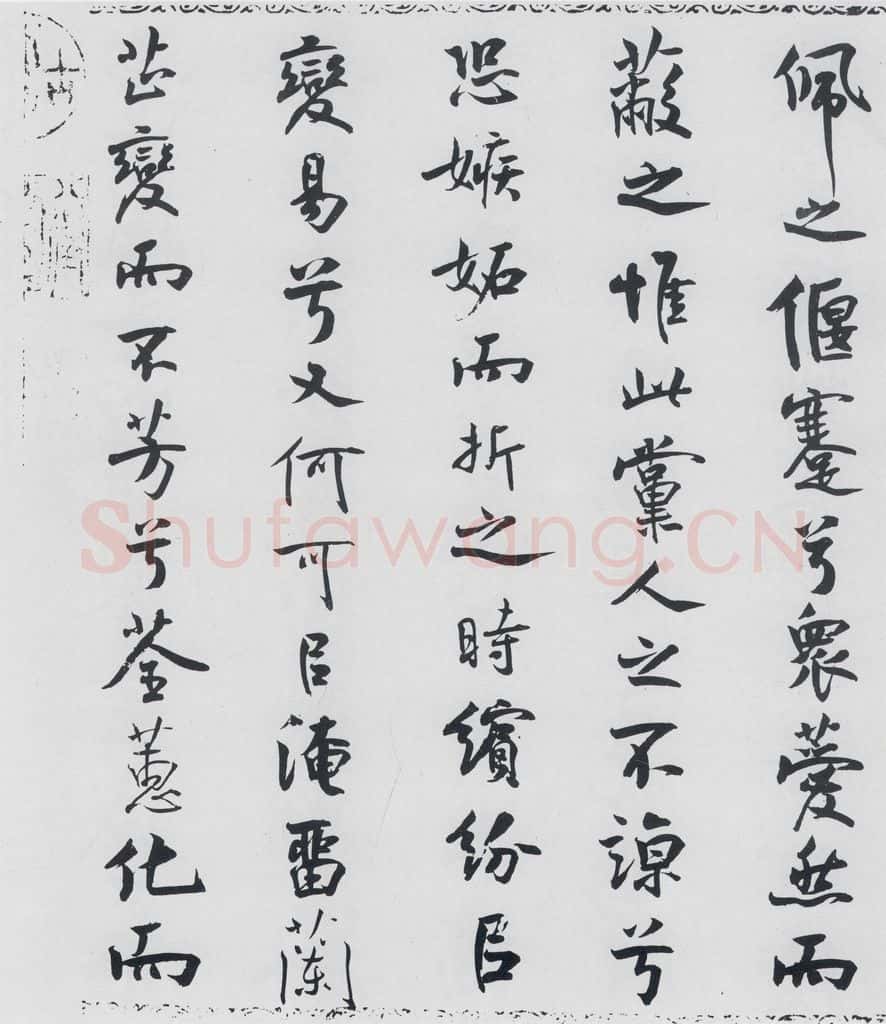 佩之偃蹇兮衆薆然而
蔽之惟此黨人之不諒兮
恐嫉妬而折之時繽紛㠯
變易兮又何可㠯淹畱蘭
芷變而不芳兮荃蕙化而
Shufawang.CN